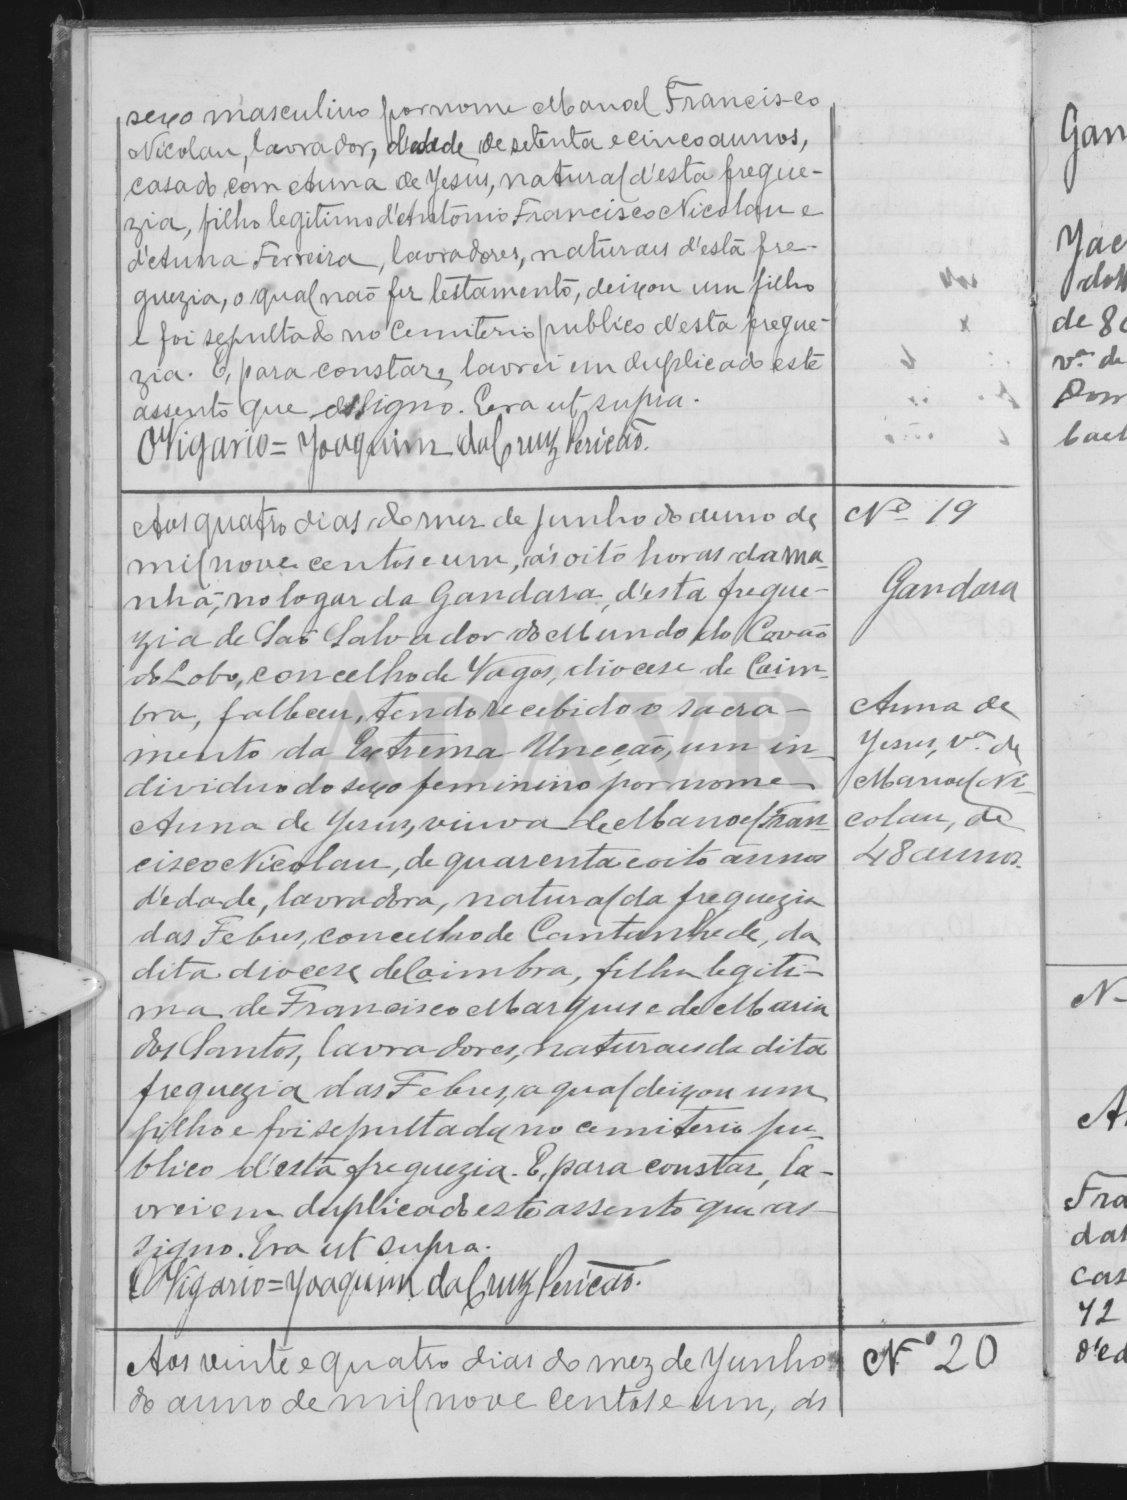 sexo masculino por nome Manoel Francisco
Nicolau, lavrador, d'edade de setenta e cinco annos,
casado com Anna de Jesus, natural d'esta fregue-
zia, filho legitimo d'Antonio Francisco Nicolau e
d'Anna Ferreira, lavradores, naturaes d'esta fre-
guezia, o qual não fez testamento, deixou um filho
e foi sepultado no cemiterio publico d'esta fregue-
zia. E, para constar, lavrei em duplicado este
assento que assigno. Era ut supra.
O Vigario = Joaquim da Cruz Pericão.
Aos quatro dias do mez de Junho do anno de
mil nove centos e um, ás oito horas da ma-
nhã, no logar da Gandara, d'esta fregue-
zia de São Salvador do Mundo do Covão
do Lobo, concelho de Vagos, diocese de Coim-
bra, falleceu, tendo recebido o sacra-
mento da Extrema Uncção, um in-
dividuo do sexo feminino por nome
Anna de Jesus, viuva de Manoel Fran-
cisco Nicolau, de quarenta e oito annos
d'edade, lavradora, natural da freguezia
das Febres, concelho de Cantanhede, da
dita diocese de Coimbra, filha legiti-
ma de Francisco Marques e de Maria
dos Santos, lavradores, naturaes da dita
freguezia das Febres, a qual deixou um
filho e foi sepultada no cemiterio pu-
blico d'esta freguezia. E, para constar, la-
vrei em duplicado este assento que as-
signo. Era ut supra.
O Vigario = Joaquim da Cruz Pericão.
Aos vinte e quatro dias do mez de Junho
do anno de mil nove centos e um, ás
Nº 19
Gandara
Anna de
Jesus, vª de
Manoel Ni-
colau, de
48 annos.
Nº 20
ADAVR
Gan
Jac
de 80
vª de
Dom
N
A
Fra
das
cas
72
d'ed